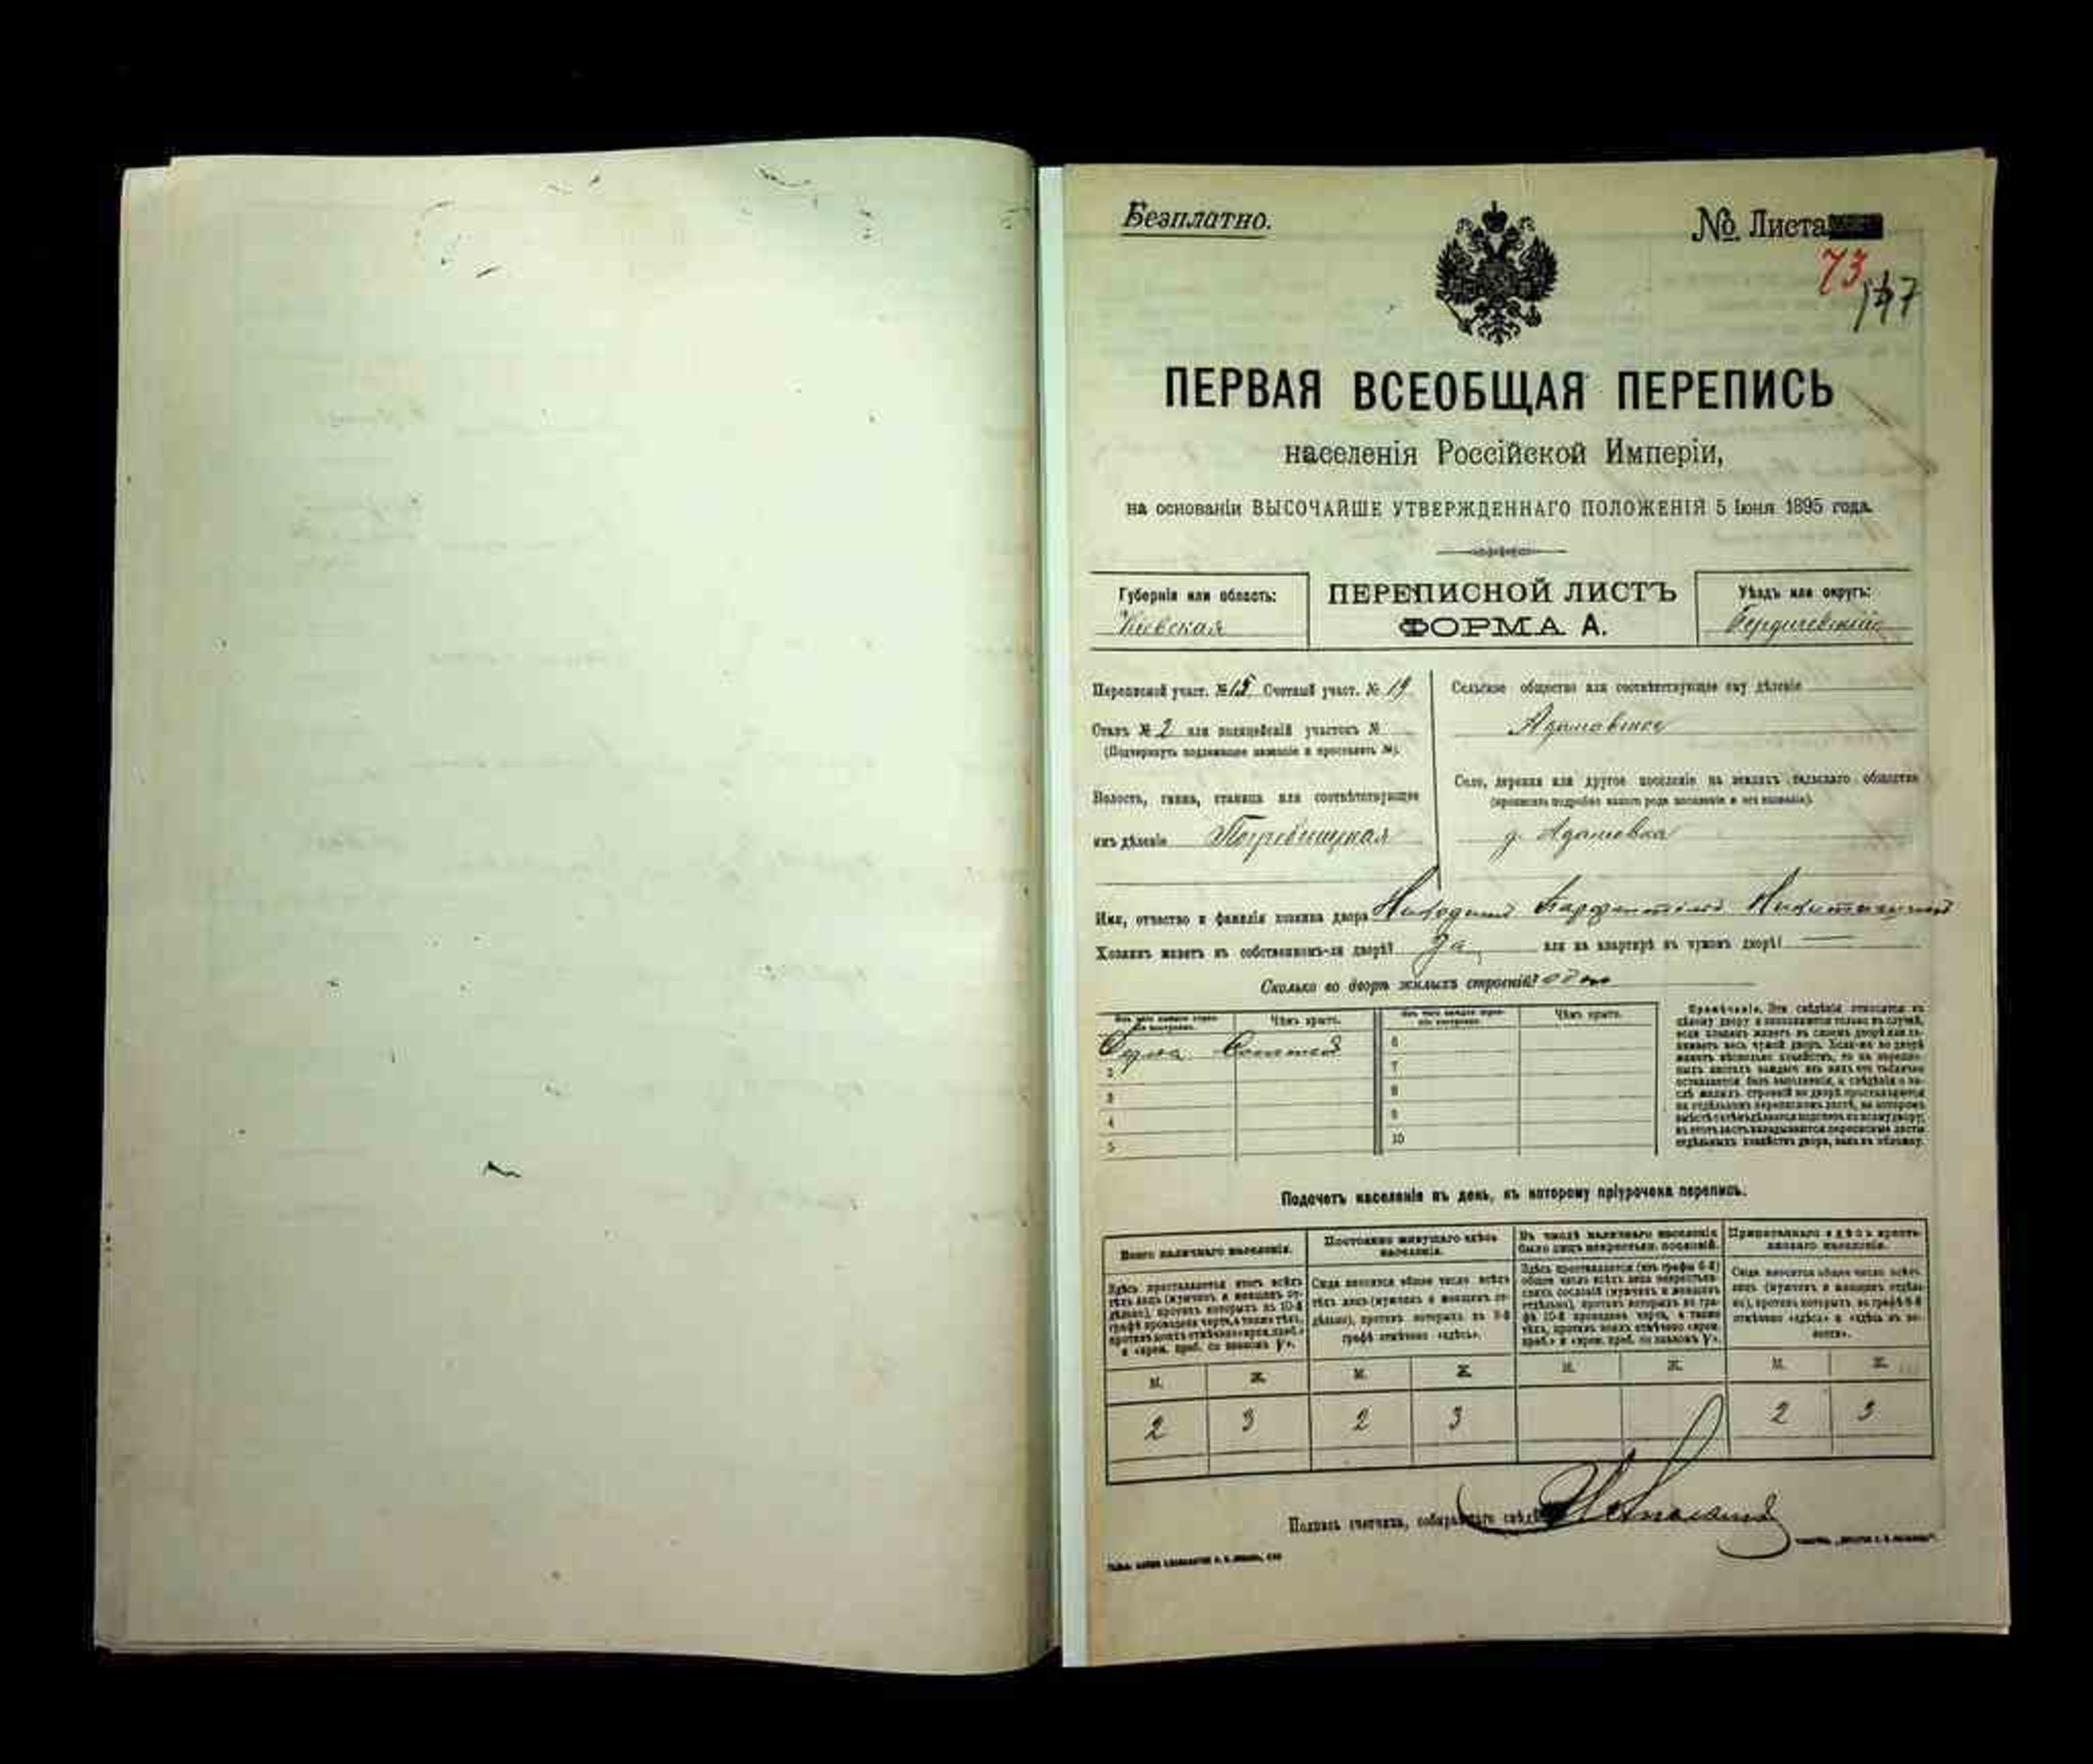 Безплатно.
№ Листа
73
147
ПЕРВАЯ ВСЕОБЩАЯ ПЕРЕПИСЬ
населенія Россійской Имперіи,
на основаніи ВЫСОЧАЙШЕ УТВЕРЖДЕННАГО ПОЛОЖЕНІЯ 5 Іюня 1895 года.
Губернія или область:
Кіевская
ПЕРЕПИСНОЙ ЛИСТЪ
ФОРМА А.
Уѣздъ или округъ:
Бердичевскій
Переписной участ. № 15 Счетный участ. № 19
Станъ № 2 или полицейскій участокъ №
(Подчеркнуть подлежащее названіе и проставить №).
Волость, гмина, станица или соотвѣтствующее
имъ дѣленіе Погребищкая
Сельское общество или соотвѣтствующее ему дѣленіе
Адамовское
Село, деревня или другое поселеніе на земляхъ сельскаго общества
(прописать подробно какого рода поселеніе и его названіе).
д. Адамовка
Имя, отчество и фамилія хозяина двора Никодимъ
Хозяинъ живетъ въ собственномъ-ли дворѣ? да или на квартирѣ въ чужомъ дворѣ? —
Сколько во дворѣ жилыхъ строеній? одно
Изъ чего каждое строеніе построено. Чѣмъ крыто. Изъ чего каждое строеніе построено. Чѣмъ крыто.
Соломой 6
2 7
3 8
4 9
5 10
Примѣчаніе. Эти свѣдѣнія относятся къ
цѣлому двору и заполняются только въ случаѣ,
если хозяинъ живетъ въ своемъ дворѣ или за-
нимаетъ весь чужой дворъ. Если-же во дворѣ
живетъ нѣсколько хозяйствъ, то на перепис-
ныхъ листахъ каждаго изъ нихъ эта табличка
оставляется безъ заполненія, а свѣдѣнія о чи-
слѣ жилыхъ строеній во дворѣ проставляются
на отдѣльномъ переписномъ листѣ, на которомъ
вмѣстѣ съ тѣмъ дѣлается подсчетъ по всему двору;
въ этотъ листъ вкладываются переписные листы
отдѣльныхъ хозяйствъ двора, какъ въ обложку.
Подсчетъ населенія въ день, къ которому пріурочена перепись.
Всего наличнаго населенія.
Здѣсь проставляется итогъ всѣхъ
тѣхъ лицъ (мужчинъ и женщинъ от-
дѣльно), противъ которыхъ въ 10-й
графѣ проведена черта, а также тѣхъ,
противъ коихъ отмѣчено «врем. преб.»
и «врем. преб. со знакомъ V».
Постоянно живущаго здѣсь
населенія.
Сюда вносится общее число всѣхъ
тѣхъ лицъ (мужчинъ и женщинъ от-
дѣльно), противъ которыхъ въ 9-й
графѣ отмѣчено «здѣсь».
Въ числѣ наличнаго населенія
было лицъ некрестьян. сословій.
Здѣсь проставляется (изъ графы 6-й)
общее число всѣхъ лицъ некрестьян-
скихъ сословій (мужчинъ и женщинъ
отдѣльно), противъ которыхъ въ гра-
фѣ 10-й проведена черта, а также
тѣхъ, противъ коихъ отмѣчено «врем.
преб.» и «врем. преб. со знакомъ V».
Приписаннаго здѣсь кресть-
янскаго населенія.
Сюда вносится общее число всѣхъ
лицъ (мужчинъ и женщинъ отдѣль-
но), противъ которыхъ въ графѣ 8-й
отмѣчено «здѣсь» и «здѣсь въ во-
лости».
М. Ж. М. Ж. М. Ж. М. Ж.
2 3 2 3 2 3
Подпись счетчика, собиравшаго свѣдѣ